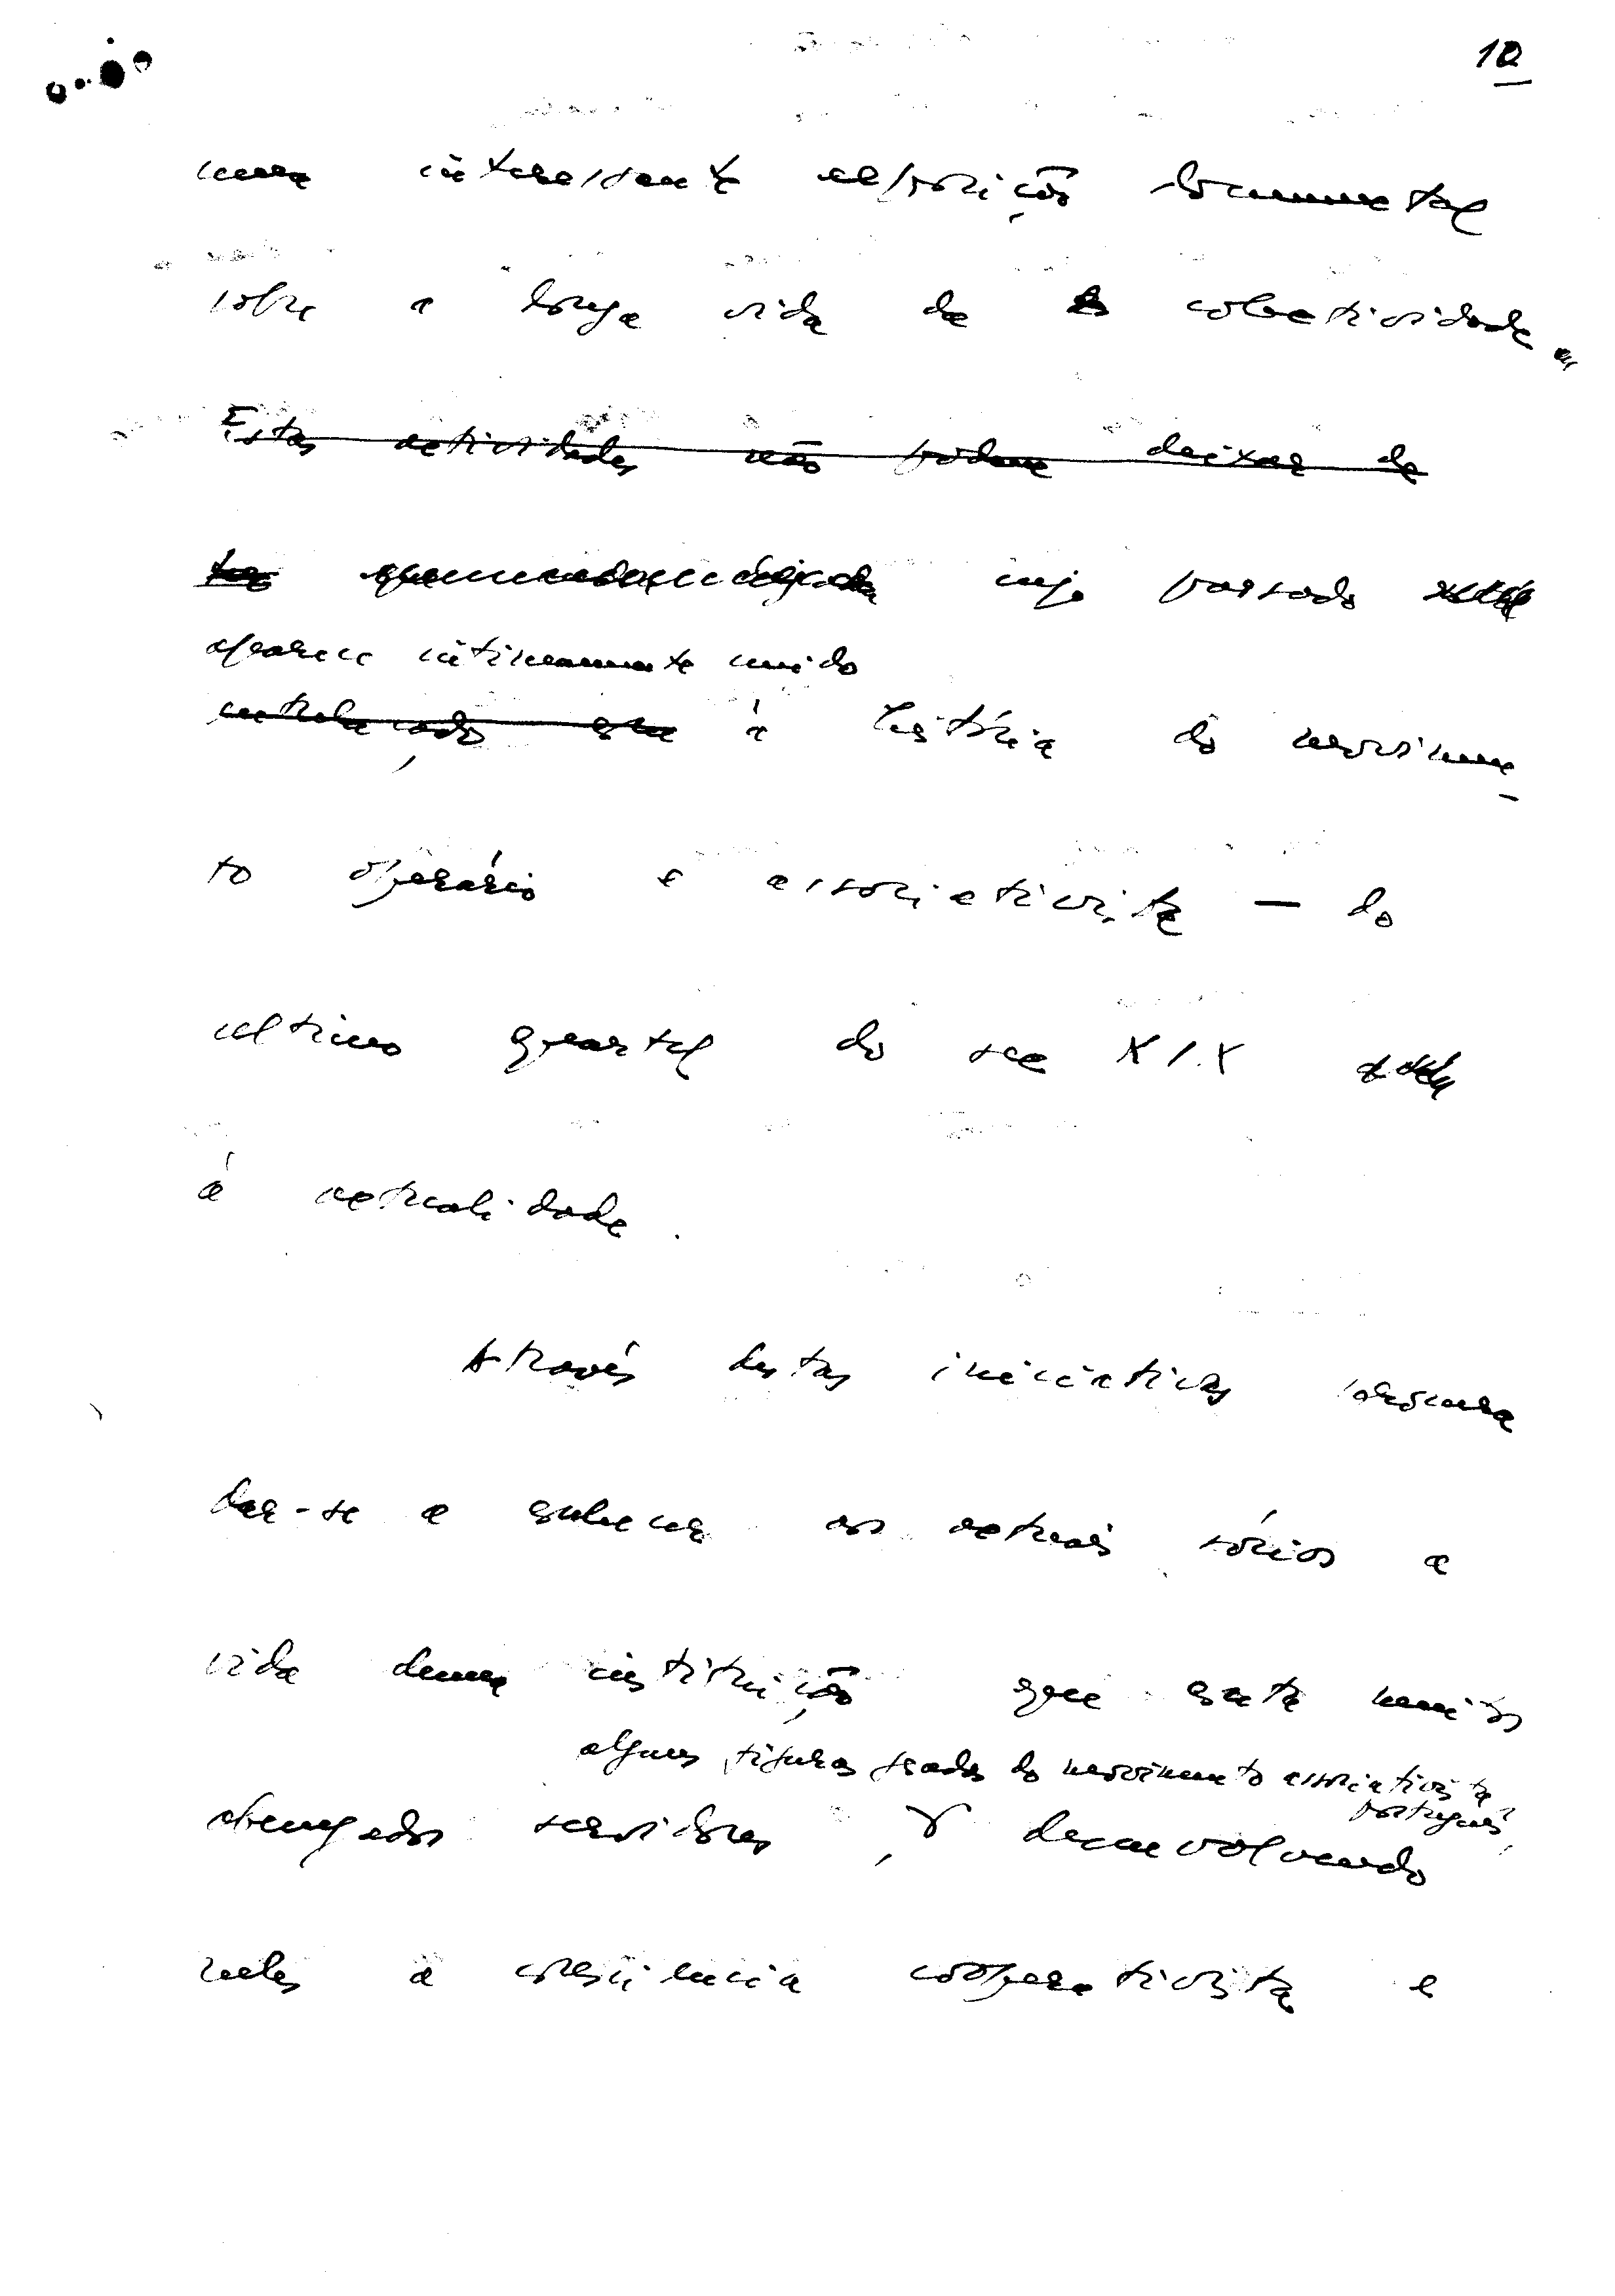 10
uma interessante exposição documental
sobre a longa vida da colectividade,
Estas actividades não podem deixar de
ter cujo passado
aparece intimamente unido
entrelaçado à história do movimen-
to operário e associativista — do
ultimo quartel do sec XIX
á actualidade.
Através destas iniciativas procura
dar-se a conhecer aos actuais sócios a
vida duma instituição que conta muitos
algumas figuras gradas do movimento associativista
português,
abnegados servidores, desenvolvendo
neles a consciência cooperativista e